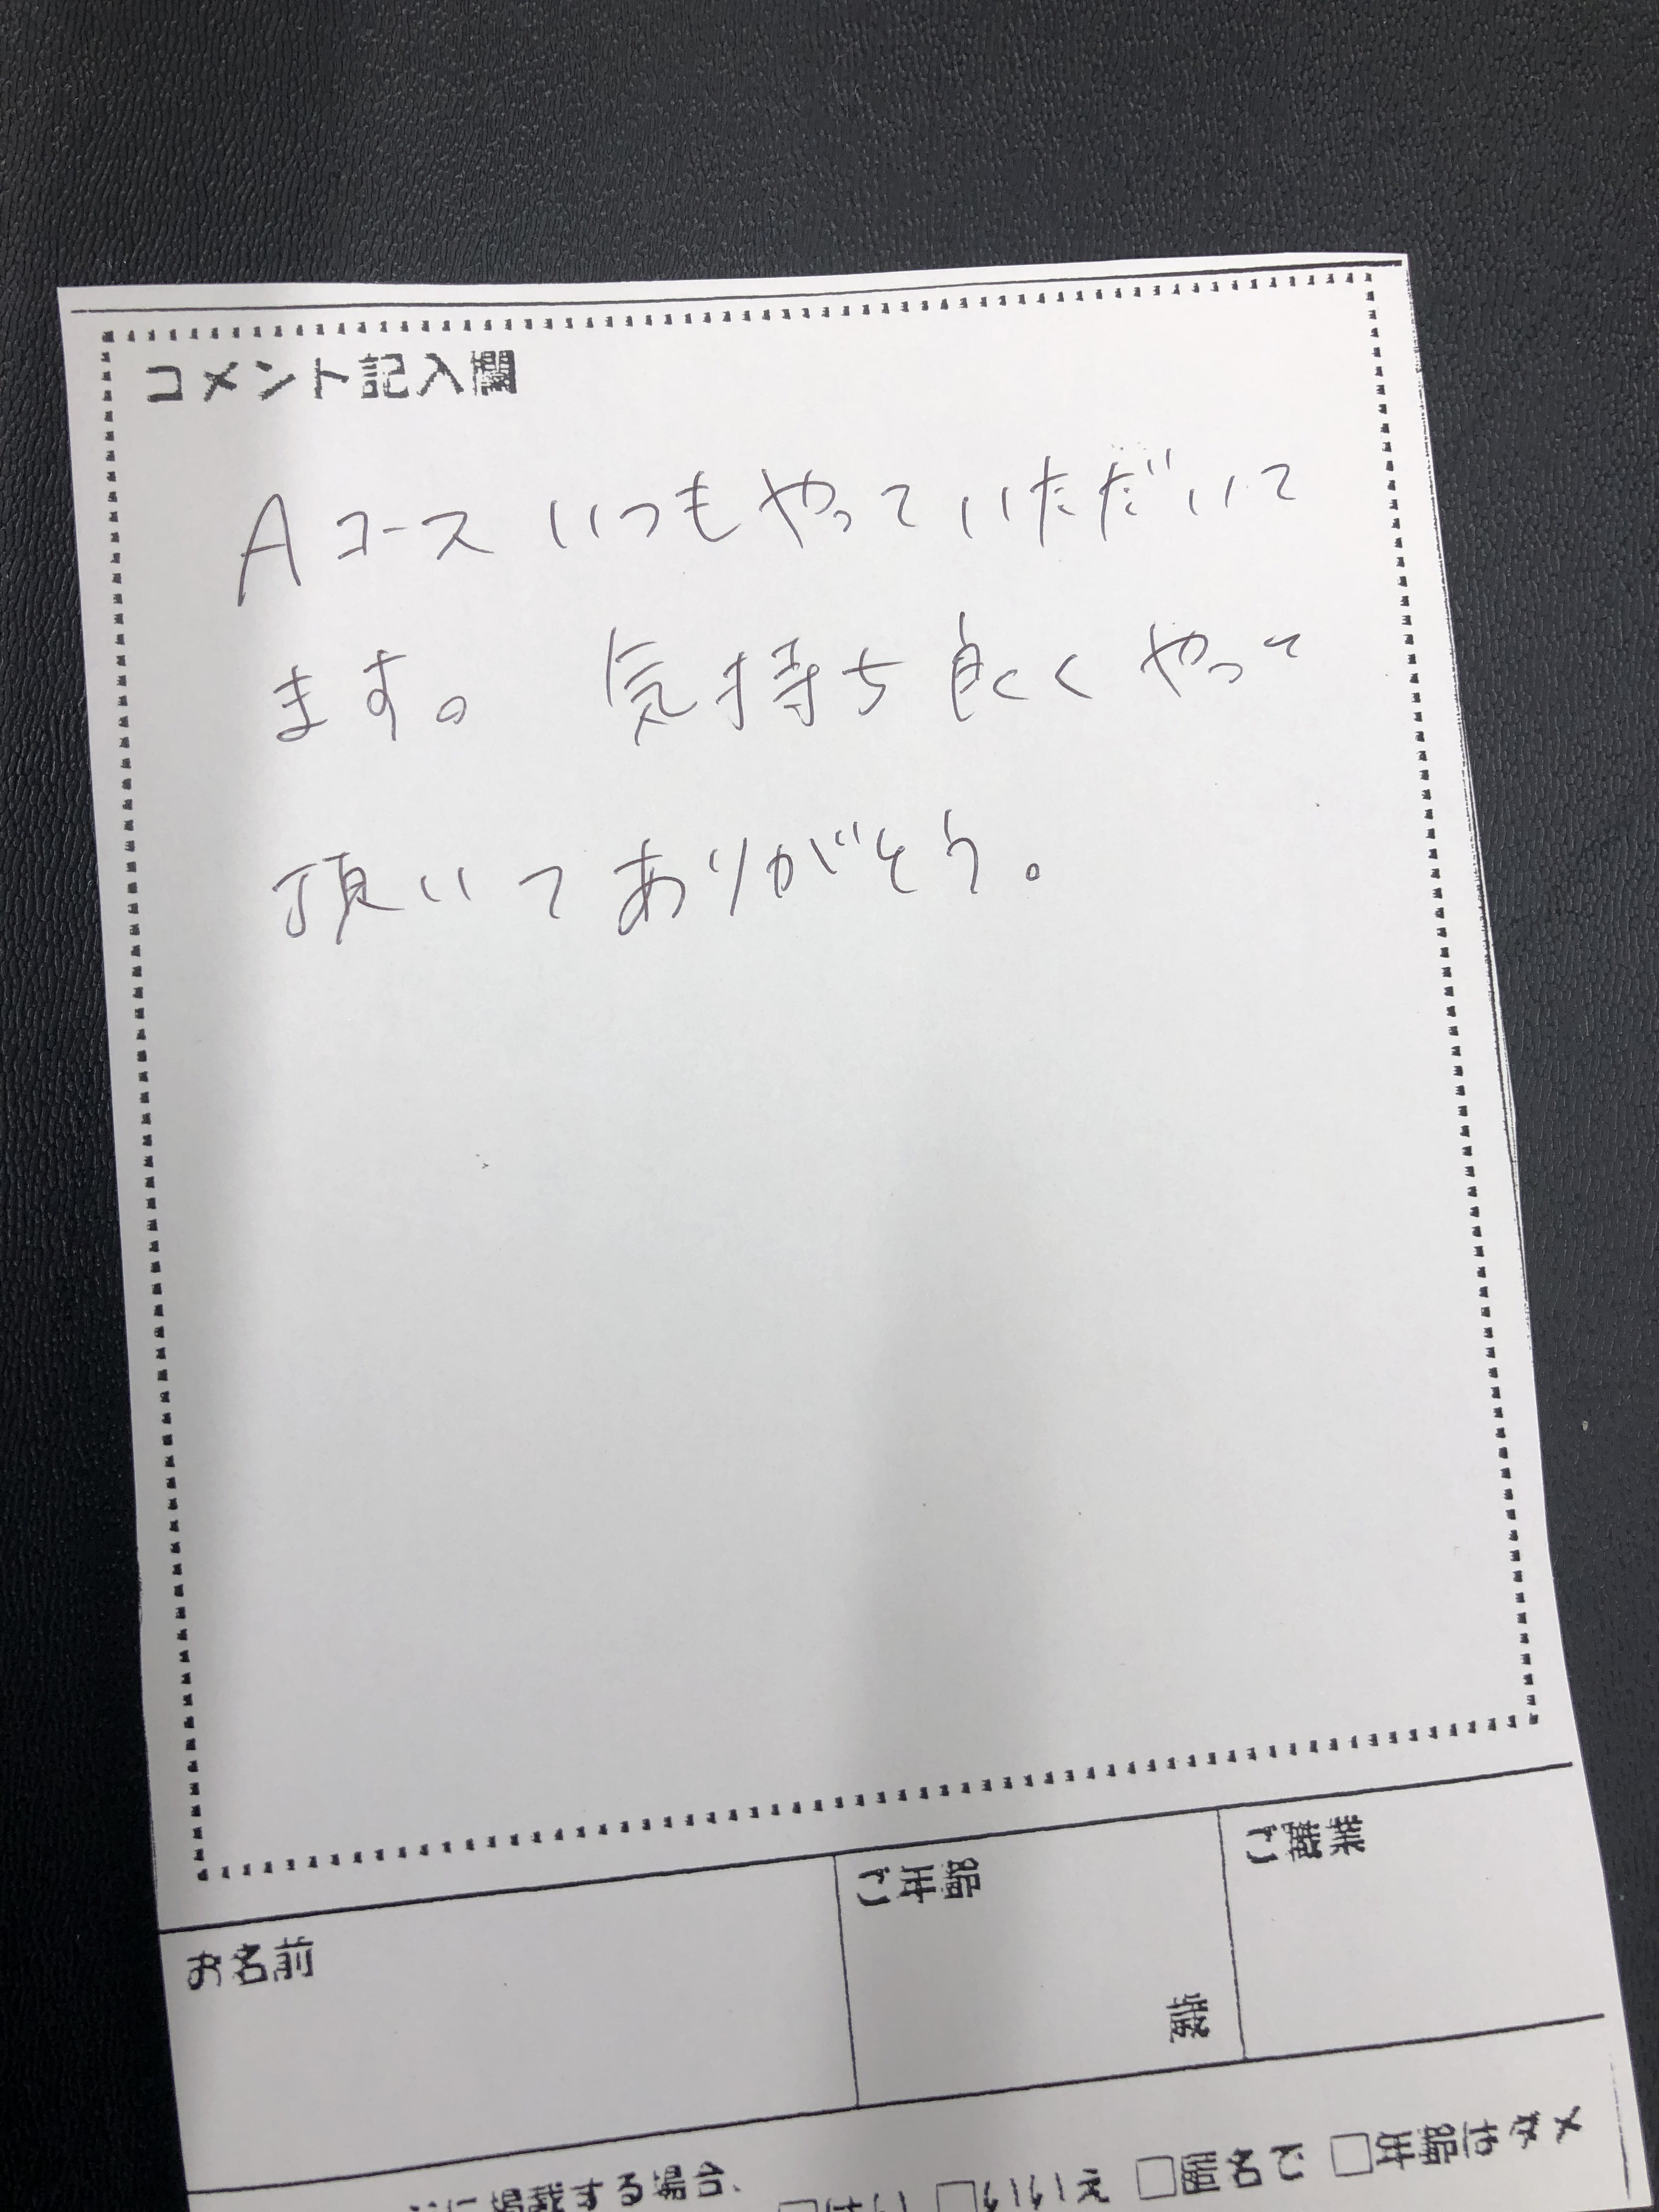 コメント記入欄
Aコースいつもやっていただいて
ます。 気持ち良くやって
頂いてありがとう。
お名前
ご年齢
歳
ご職業
に掲載する場合、 □はい □いいえ □匿名で □年齢はダメ